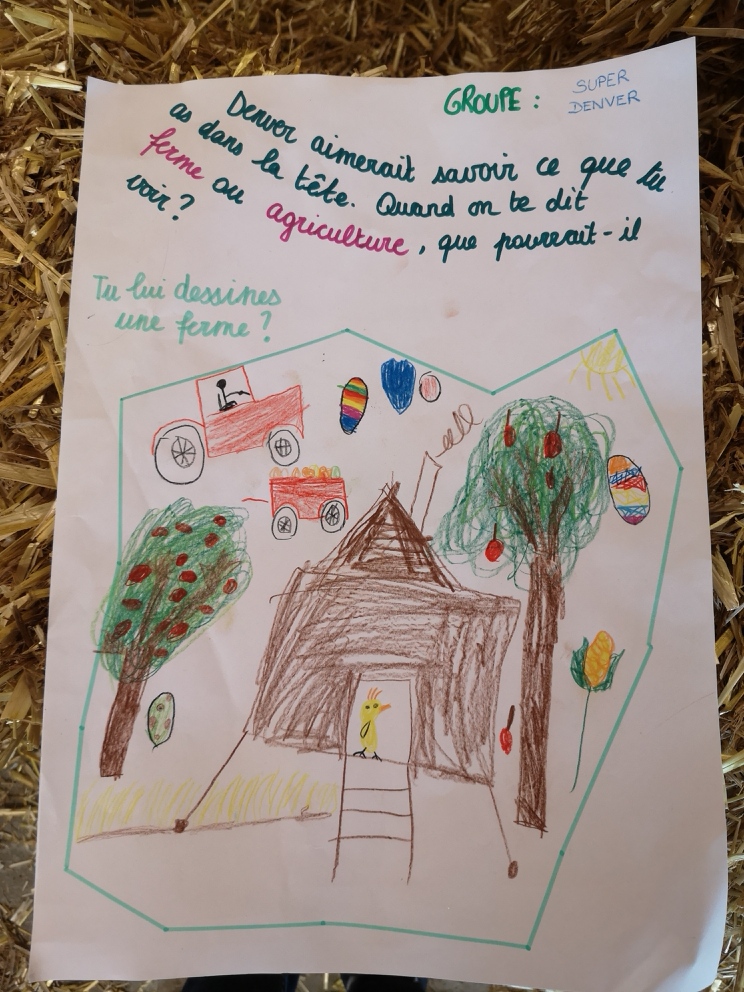 GROUPE : SUPER
DENVER
Denver aimerait savoir ce que tu
as dans la tête. Quand on te dit
ferme ou agriculture, que pourrait-il
voir?
Tu lui dessines
une ferme ?